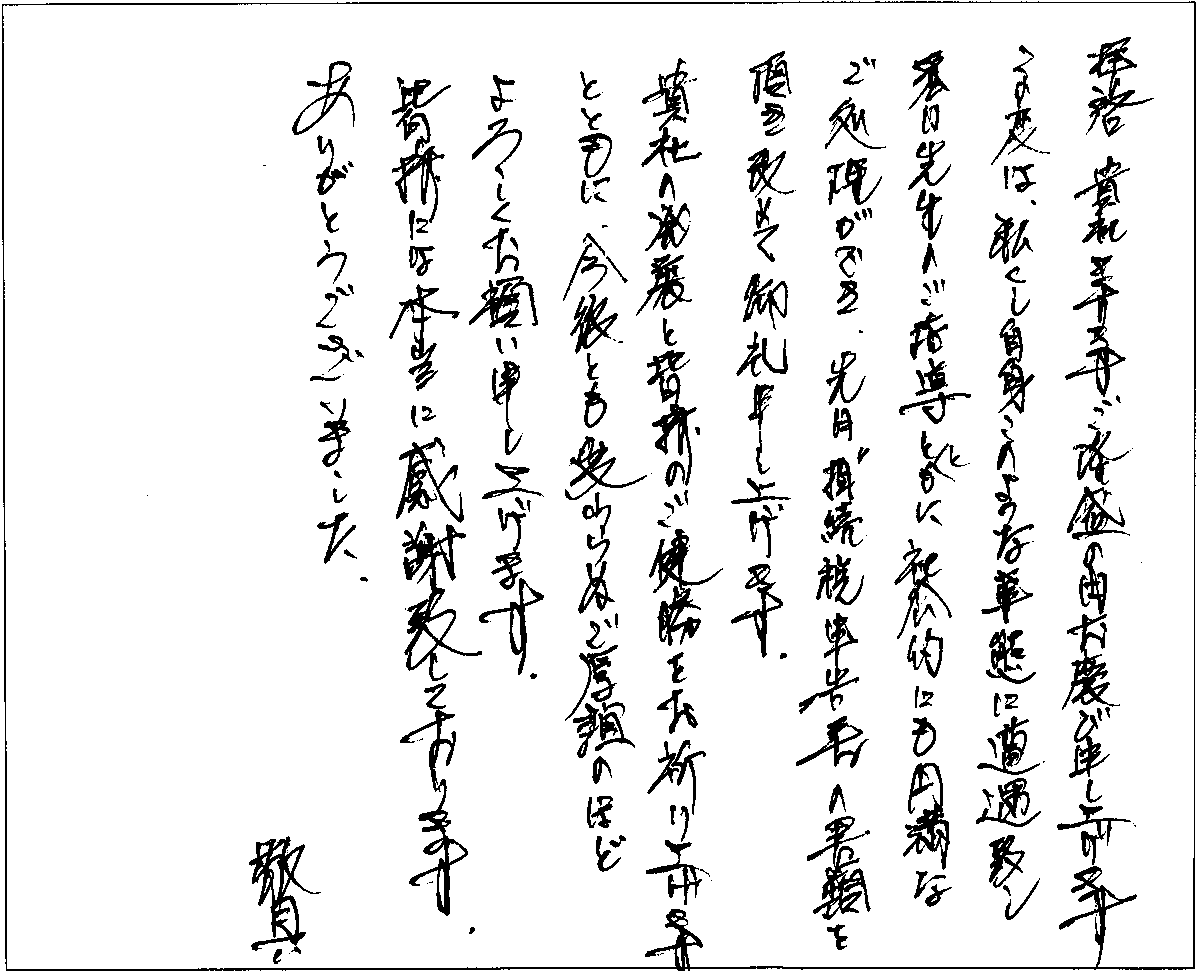 拝啓 貴社ますますご隆盛の由お慶び申し上げます
この度は、私くし自身このような事態に遭遇致し
春日先生のご指導とともに 社会的にも円満な
ご処理ができ、先日 相続税申告書の書類を
頂き改めて御礼申し上げます.
貴社の発展と皆様のご健勝をお祈り上げます
とともに、今後とも変わらぬご厚類のほど
よろしくお願い申し上げます.
皆様には本当に感謝致しております.
ありがとうございました.
敬具